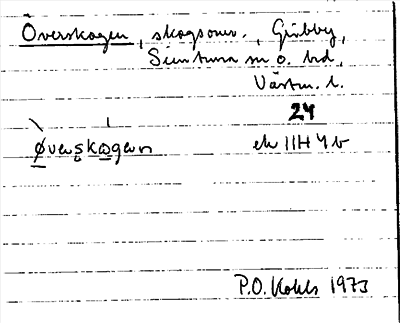 Överskogen, skogsomr., Gribby,
Simtuna sn o. hd,
Västm. l.
24
øvęrskǫgęn ek 11H 4b
P.O. Kohls 1973